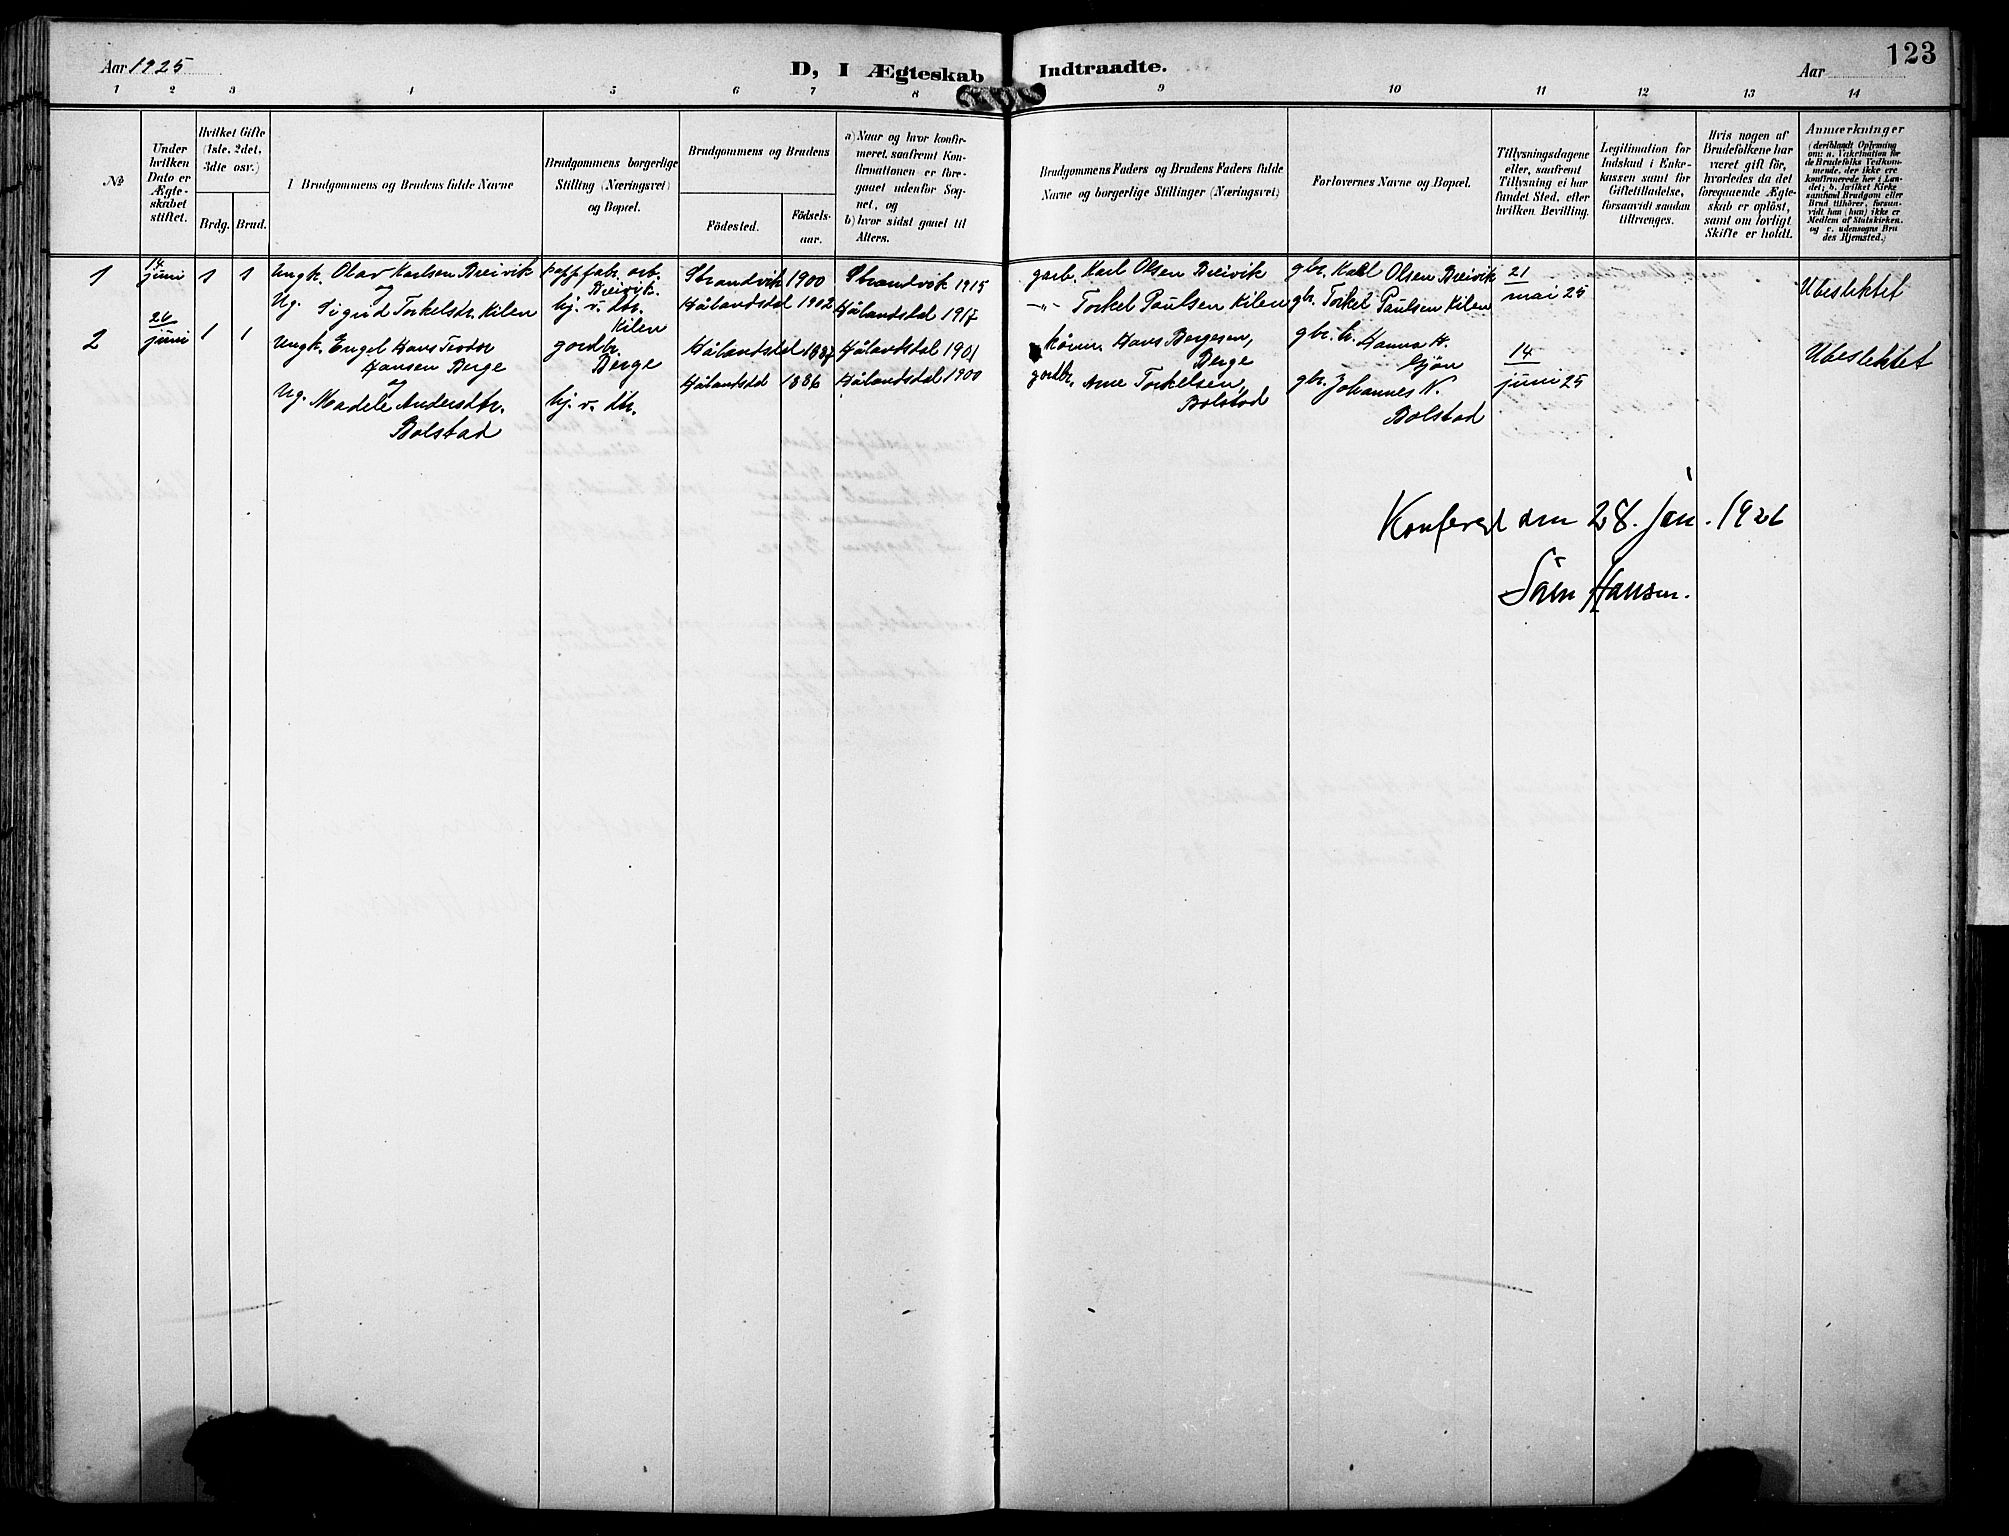 123
Aar 1925
D, I Ægteskab Indtraadte.
Aar
1 2 3 4 5 6 7 8 9 10 11 12 13 14
№
Under hvilken Dato er Ægteskabet stiftet.
Hvilket Gifte (1ste, 2det, 3die osv.)
Brdg. Brud.
I Brudgommens og Brudens fulde Navne
Brudgommens borgerlige Stilling (Næringsvei) og Bopæl.
Brudgommens og Brudens
Födested.
Födselsaar.
a) Naar og hvor konfirmeret, saafremt Konfirmationen er foregaaet udenfor Sognet, og
b) hvor sidst gaaet til Alters.
Brudgommens Faders og Brudens Faders fulde Navne og borgerlige Stillinger (Næringsvei)
Forlovernes Navne og Bopæl.
Tillysningsdagene eller, saafremt Tillysning ei har fundet Sted, efter hvilken Bevilling.
Legitimation for Indskud i Enkekassen samt for Giftetilladelse, forsaavidt saadan tiltrænges.
Hvis nogen af Brudefolkene har været gift för, hvorledes da det foregaaende Ægteskab er oplöst, samt om lovligt Skifte er holdt.
Anmærkninger
(deriblandt Oplysning om: a. Vakcination for de Brudefolks Vedkommende, der ikke ere konfirmerede her i Landet; b. hvilket Kirkesamfund Brudgom eller Brud tilhörer, forsaavidt han (hun) ikke er Medlem af Statskirken, og c. udensogns Brudes Hjemsted.)
1 14 juni 1 1 Ungk. Olav Karlsen Breivik kappfab. arb. Breivik. Strandvik 1900 Strandvik 1915 garb. Karl Olsen Breivik gbr. Karl Olsen Breivik 21 mai 25 Ubeslektet
og
Ug. Sigrid Torkelsdr. Kilen hj. v. dtr. Kilen Hålandsdal 1902 Hålandsdal 1917 -"- Torkel Paulsen Kilen gbr. Torkel Paulsen Kilen
2 26 juni 1 1 Ungk. Engel Hans Teodor Hansen Berge gardbr. Berge Hålandsdal 1887 Hålandsdal 1901 Hans Bergesen, Berge gbr. h. Hanna H. Gjøn 14 juni 25 Ubeslektet
og
Ug. Madele Andersdtr. Bolstad hj. v. dtr. Hålandsdal 1886 Hålandsdal 1900 gardbr. Arne Torkelsen, Bolstad gbr. Johannes N. Bolstad
Konferert den 28. jan. 1926
Sören Hansen.